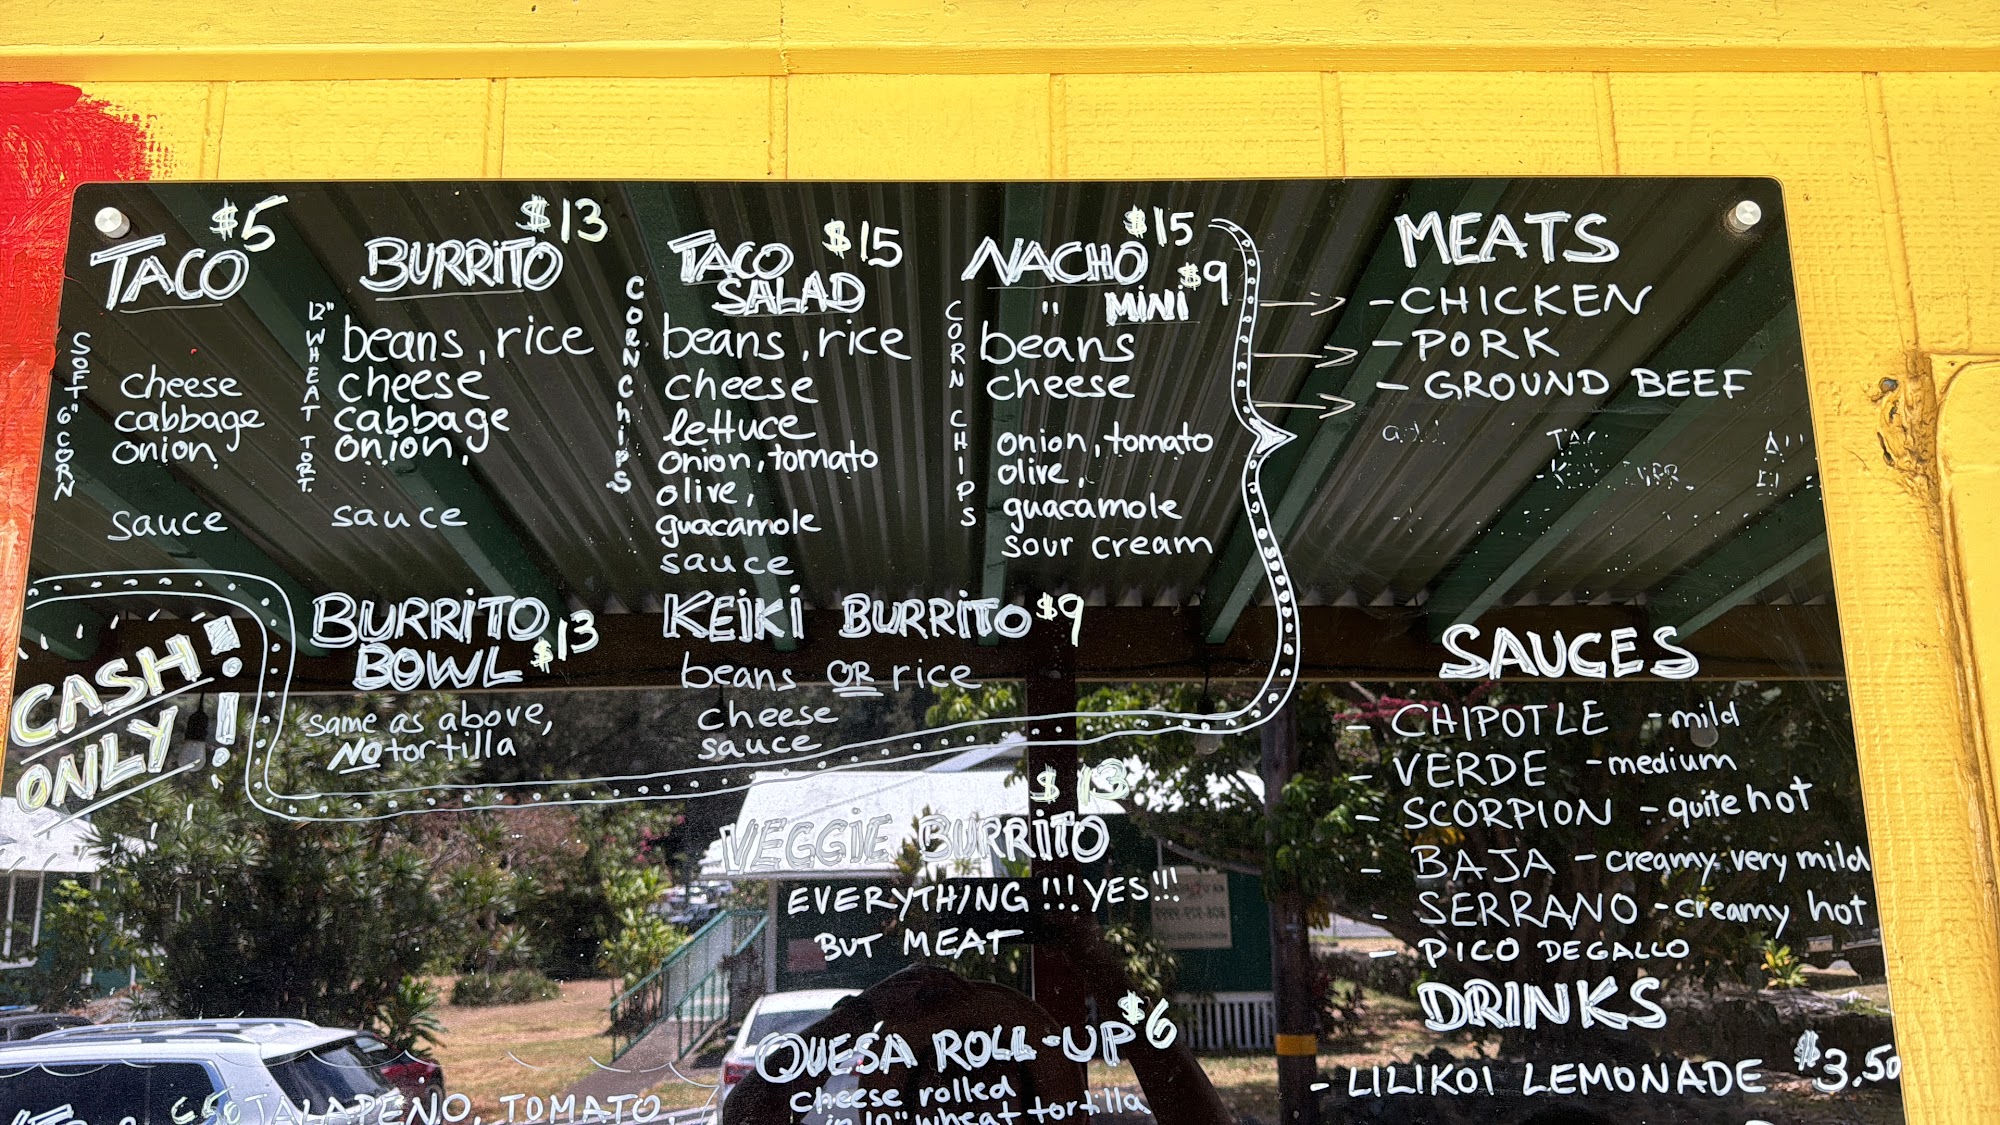 TACO $5
SOFT 6" CORN
cheese
cabbage
onion
sauce
BURRITO $13
12" WHEAT TORT.
beans, rice
cheese
cabbage
onion,
sauce
TACO SALAD $15
CORN CHIPS
beans, rice
cheese
lettuce
onion, tomato
olive,
guacamole
sauce
NACHO $15
" MINI $9
CORN CHIPS
beans
cheese
onion, tomato
olive,
guacamole
sour cream
MEATS
- CHICKEN
- PORK
- GROUND BEEF
CASH ONLY!!
BURRITO BOWL $13
same as above,
NO tortilla
KEIKI BURRITO $9
beans OR rice
cheese
sauce
$13
VEGGIE BURRITO
EVERYTHING!!! YES!!!
BUT MEAT
QUESA ROLL-UP $6
cheese rolled
in 10" wheat tortilla
JALAPENO, TOMATO,
SAUCES
- CHIPOTLE - mild
- VERDE - medium
- SCORPION - quite hot
- BAJA - creamy very mild
- SERRANO - creamy hot
- PICO DE GALLO
DRINKS
- LILIKOI LEMONADE $3.50